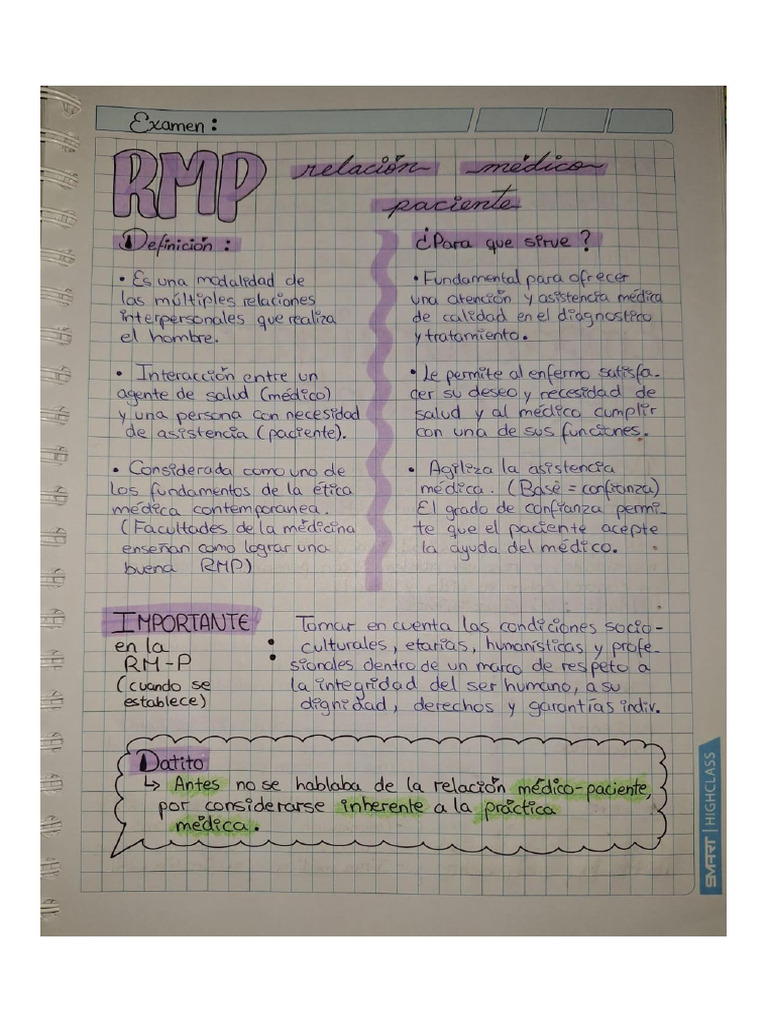 Examen:
RMP relación médico
paciente
Definición:
• Es una modalidad de
las múltiples relaciones
interpersonales que realiza
el hombre.
• Interacción entre un
agente de salud (médico)
y una persona con necesidad
de asistencia (paciente).
• Considerada como uno de
los fundamentos de la ética
médica contemporanea.
(Facultades de la médicina
enseñan como lograr una
buena RMP)
¿Para que sirve?
• Fundamental para ofrecer
una atención y asistencia médica
de calidad en el diagnostico
y tratamiento.
• Le permite al enfermo satisfa-
cer su deseo y necesidad de
salud y al médico cumplir
con una de sus funciones.
• Agiliza la asistencia
médica. (Base = confianza)
El grado de confianza permi-
te que el paciente acepte
la ayuda del médico.
IMPORTANTE
en la
RM-P
(cuando se
establece)
:
Tomar en cuenta las condiciones socio-
culturales, etarias, humanísticas y profe-
sionales dentro de un marco de respeto a
la integridad del ser humano, a su
dignidad, derechos y garantías indiv.
Datito
↳ Antes no se hablaba de la relación médico-paciente,
por considerarse inherente a la práctica
médica.
SMART | HIGHCLASS